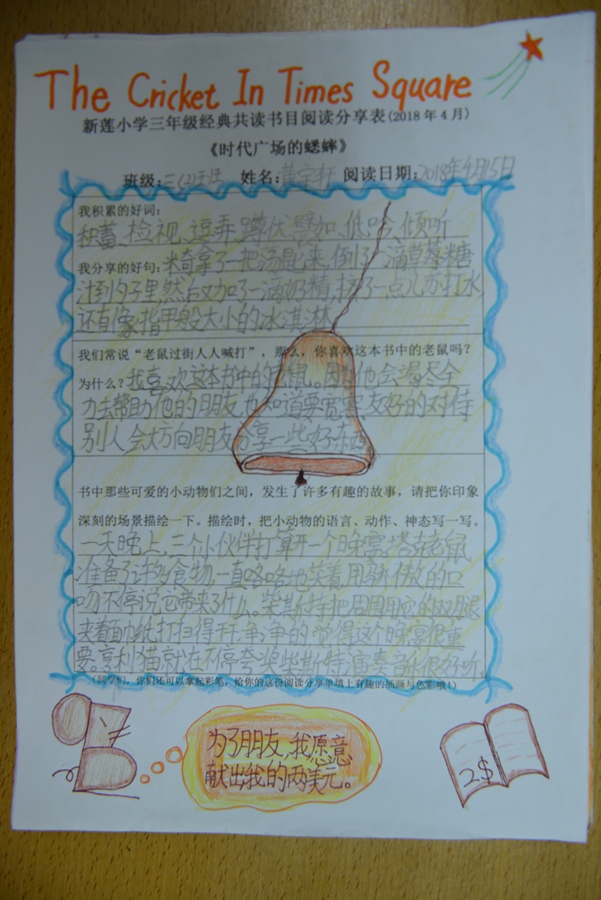 The Cricket In Times Square
新莲小学三年级经典共读书目阅读分享表(2018年4月)
《时代广场的蟋蟀》
班级:三(2)班 姓名: 阅读日期:2018年4月15日
我积累的好词:
积蓄、检视、逗弄、蹲伏、叠加、低吟、倾听
我分享的好句:米奇拿了一把汤匙来,倒了 滴草莓糖
汁到勺子里,然后又加了一滴奶精,挤了一点儿苏打水
还有像指甲般大小的冰淇淋
我们常说“老鼠过街人人喊打”,那么,你喜欢这本书中的老鼠吗?
为什么?我喜欢这本书中的老鼠。因为他会竭尽全
力去帮助他的朋友,也知道要宽容友好的对待
别人,会大方向朋友分享一些好东西
书中那些可爱的小动物们之间,发生了许多有趣的故事,请把你印象
深刻的场景描绘一下。描绘时,把小动物的语言、动作、神态写一写。
一天晚上,三个小伙伴打算开一个晚宴,塔克老鼠
准备了许多食物,一直咯咯地笑着,用 的口
吻不停说它带来了什么。柴斯特把周围用它的双腿
夹着面巾纸打扫得干干净净的,觉得这个晚宴很重
要。亨利猫就在不停夸奖柴斯特演奏音乐很好听
(同学们,你们还可以拿起彩笔,给你的这份阅读分享单填上有趣的插画与色彩哦!)
为了朋友,我愿意
献出我的两美元。
2$